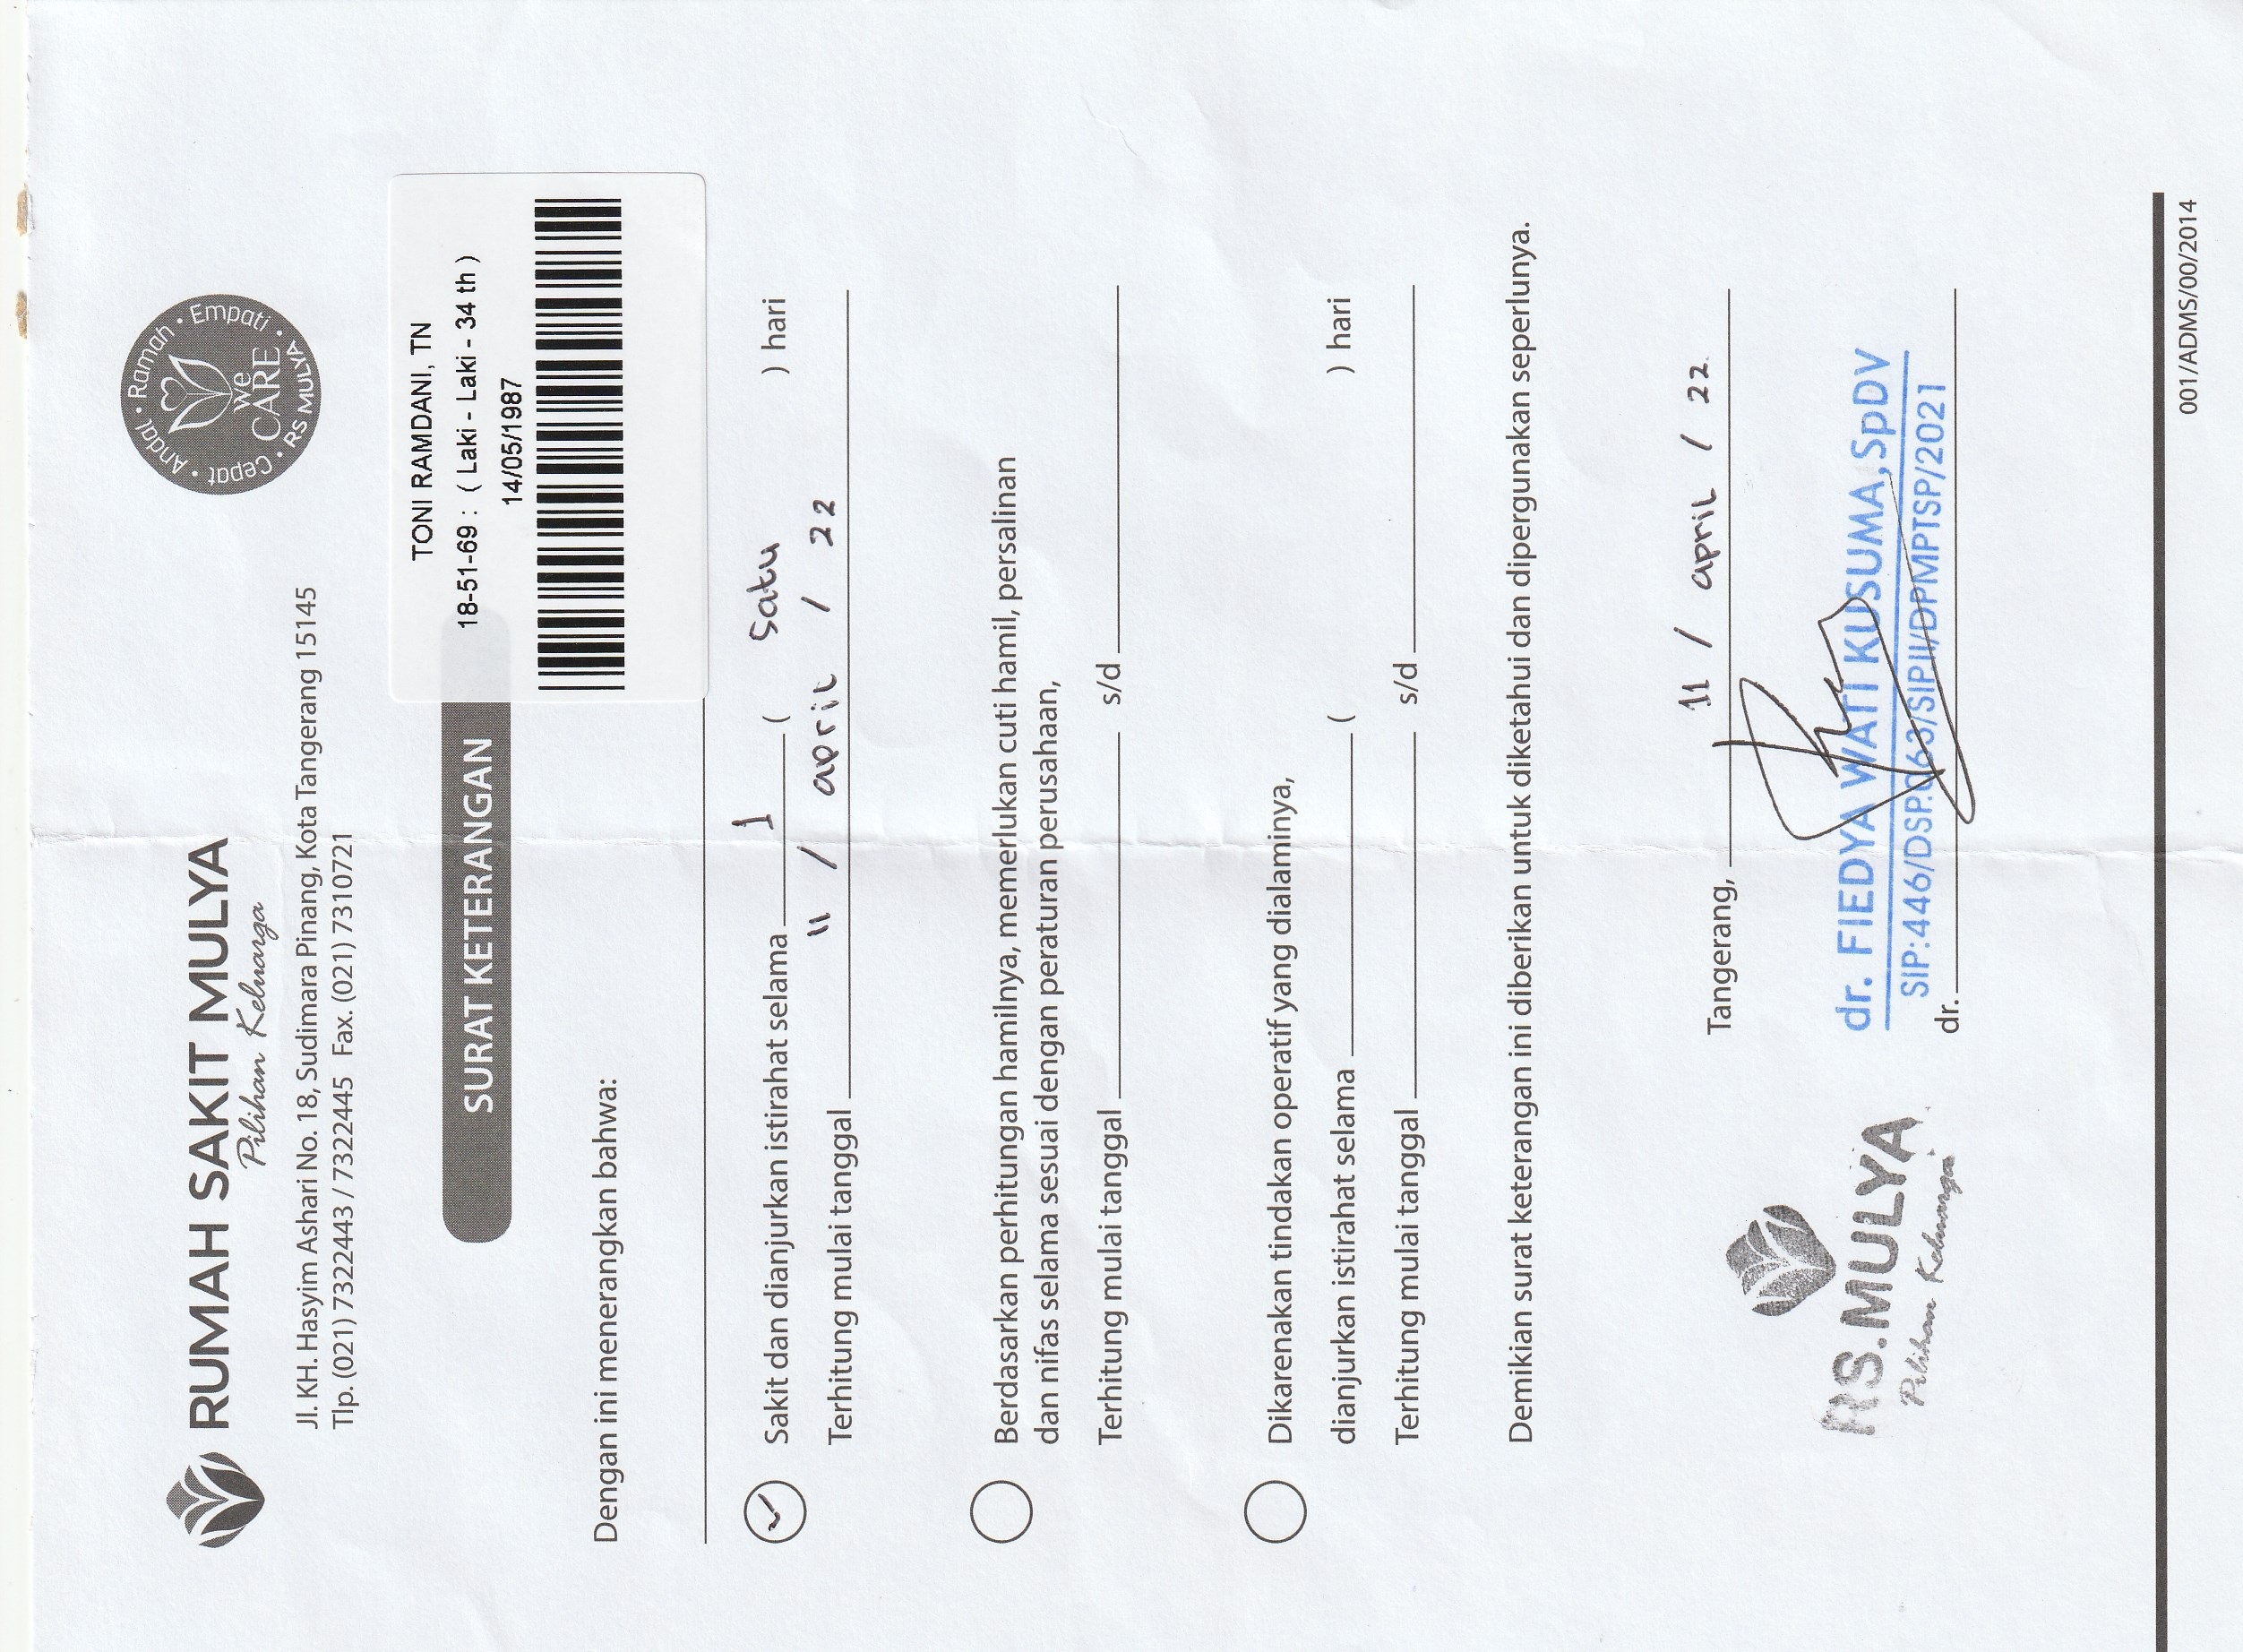 RUMAH SAKIT MULYA
Pilihan Keluarga
Andal • Ramah • Empati • Cepat • RS MULYA
We
CARE
Jl. KH. Hasyim Ashari No. 18, Sudimara Pinang, Kota Tangerang 15145
Tlp. (021) 7322443 / 7322445 Fax. (021) 7310721
SURAT KETERANGAN
TONI RAMDANI, TN
18-51-69 : ( Laki - Laki - 34 th )
14/05/1987
Dengan ini menerangkan bahwa:
Sakit dan dianjurkan istirahat selama 1 ( Satu ) hari
Terhitung mulai tanggal 11 / april / 22
Berdasarkan perhitungan hamilnya, memerlukan cuti hamil, persalinan
dan nifas selama sesuai dengan peraturan perusahaan,
Terhitung mulai tanggal s/d
Dikarenakan tindakan operatif yang dialaminya,
dianjurkan istirahat selama ( ) hari
Terhitung mulai tanggal s/d
Demikian surat keterangan ini diberikan untuk diketahui dan dipergunakan seperlunya.
Tangerang, 11 / april / 22
RS.MULYA
Pilihan Keluarga
dr. FIEDYA WATI KUSUMA,SpDV
SIP:446/DSP.063/SIP.II/DPMPTSP/2021
dr.
001/ADMS/00/2014